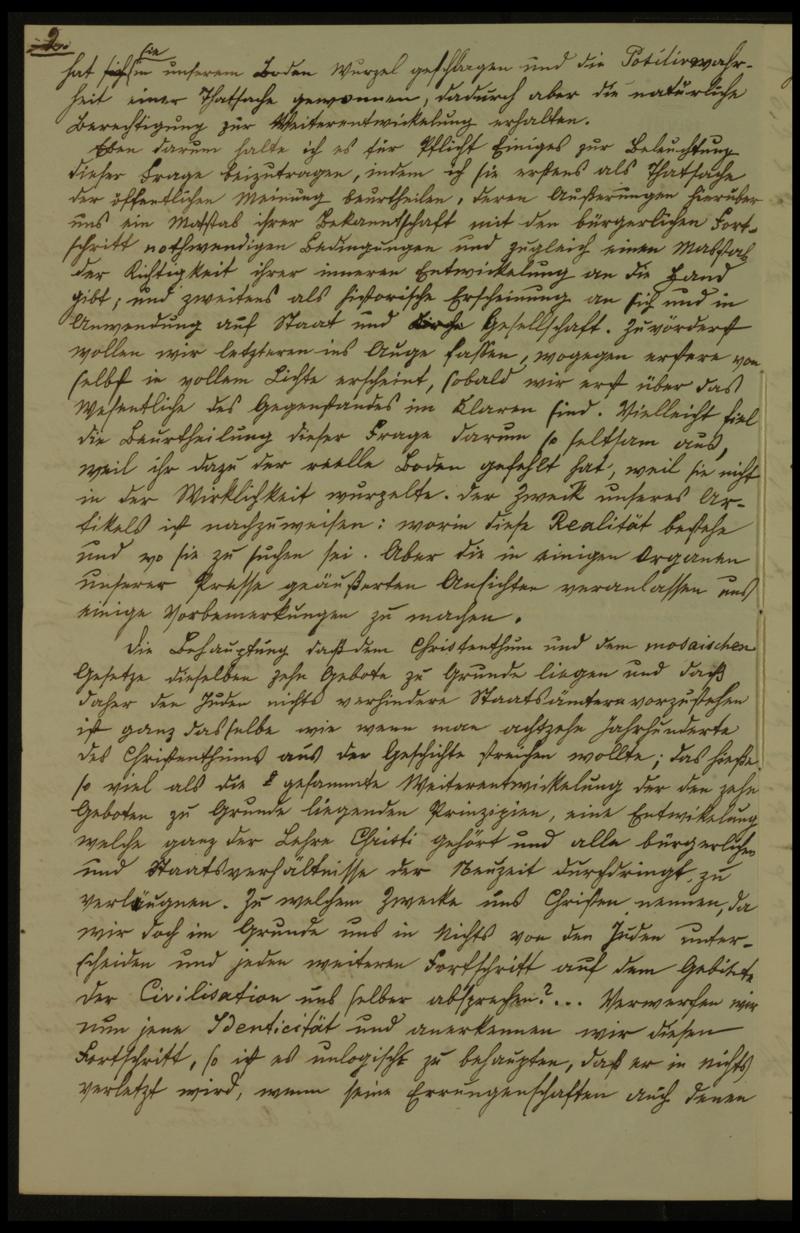 2
hat sie in unserem Boden Wurzel geschlagen und die Positivwahr-
heit einer Thatsache gewonnen, dadurch aber die natürliche
Berechtigung zur Weiterentwickelung erhalten.
Eben darum halte ich es für Pflicht Einiges zur Beleuchtung
dieser Frage beizutragen, indem ich sie erstens als Thatsache
der öffentlichen Meinung beurtheilen, deren Äußerungen hierüber
uns ein Maßstab ihrer Bekanntschaft mit den bürgerlichen Fort-
schritt nothwendigen Bedingungen und zugleich einen Maßstab
der Richtigkeit ihrer inneren Entwickelung an die Hand
gibt; und zweitens als historische Erscheinung an sich und in
Anwendung auf Staat und Gesellschaft. Zuvörderst
wollen wir letzteren ins Auge fassen, wogegen erstere von
selbst in vollem Lichte erscheint, sobald wir erst über das
Wesentliche des Gegenstandes im Klaren sind. Vielleicht fiel
die Beurtheilung dieser Frage darum so seltsam aus,
weil ihr dazu der reelle Boden gefehlt hat, weil sie nicht
in der Wirklichkeit wurzelte. Der Zweck unseres Ar-
tikels ist nachzuweisen: worin diese Realität bestehe
und wo sie zu suchen sei. Aber die in einigen Organen
unserer Presse geäußerten Ansichten veranlassen uns
einige Vorbemerkungen zu machen.
Die Behauptung daß dem Christenthum und dem mosaischen
Gesetze dieselben zehn Gebote zu Grunde liegen und daß
daher den Juden nichts verhindere Staatsämtern vorzustehen
ist ganz dasselbe wie wenn man achtzehn Jahrhunderte
des Christenthums aus der Geschichte streichen wollte; das hieße
so viel als die gesammte Weiterentwickelung der den zehn
Geboten zu Grunde liegenden Prinzipien, eine Entwickelung
welche ganz der Lehre Christi gehört und alle bürgerlichen
und Staatsverhältnisse der Neuzeit durchdringt, zu
verläugnen. Zu welchem Zwecke uns Christen nennen, da
wir doch im Grunde uns in Nichts von den Juden unter-
scheiden und jeden weiteren Fortschritt auf dem Gebiete
der Civilisation uns selber absprechen?... Verwerfen wir
nun jene Identicität und anerkennen wir diesen
Fortschritt, so ist es unlogisch zu behaupten, daß er in nichts
verletzt wird, wenn seine Errungenschaften auch denen